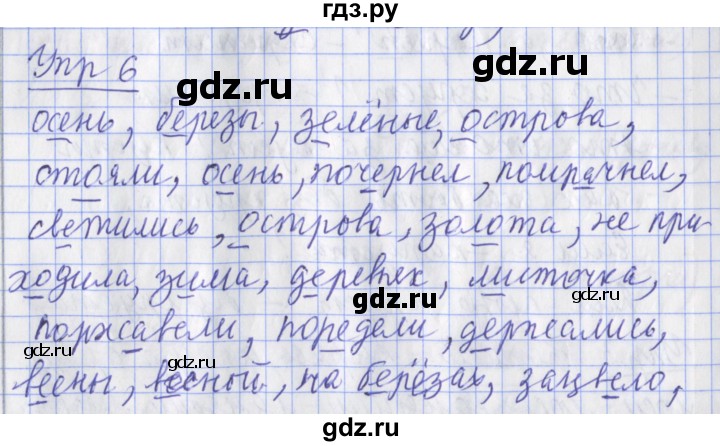 гдз.ру
Упр 6
gdz.ru
gdz.ru
осень, березы, зелёные, острова,
стояли, осень, почернел, помрачнел,
gdz.ru
светились, острова, золота, не при-
ходила, зима, деревьях, листочка,
gdz.ru
gdz.ru
gdz.ru
поржавели, поредели, держались,
gdz.ru
gdz.ru
весны, весной, на берёзах, зацвело,
gdz.ru